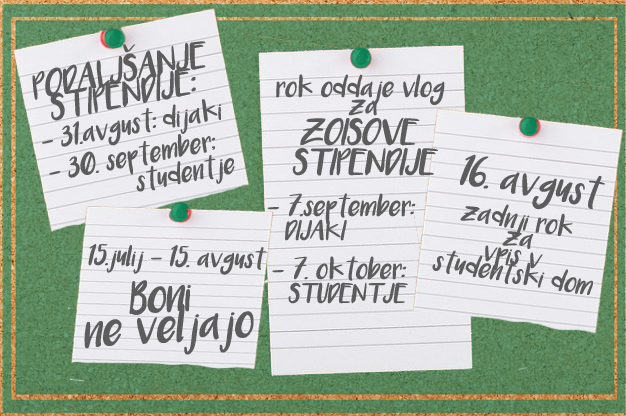 PODALJŠANJE
ŠTIPENDIJE:
- 31.avgust: dijaki
- 30. september:
študentje
rok oddaje vlog
za
ZOISOVE
ŠTIPENDIJE
- 7.september:
DIJAKI
- 7. oktober:
ŠTUDENTJE
16. avgust
zadnji rok
za
vpis v
študentski dom
15.julij - 15. avgust
Boni
ne veljajo